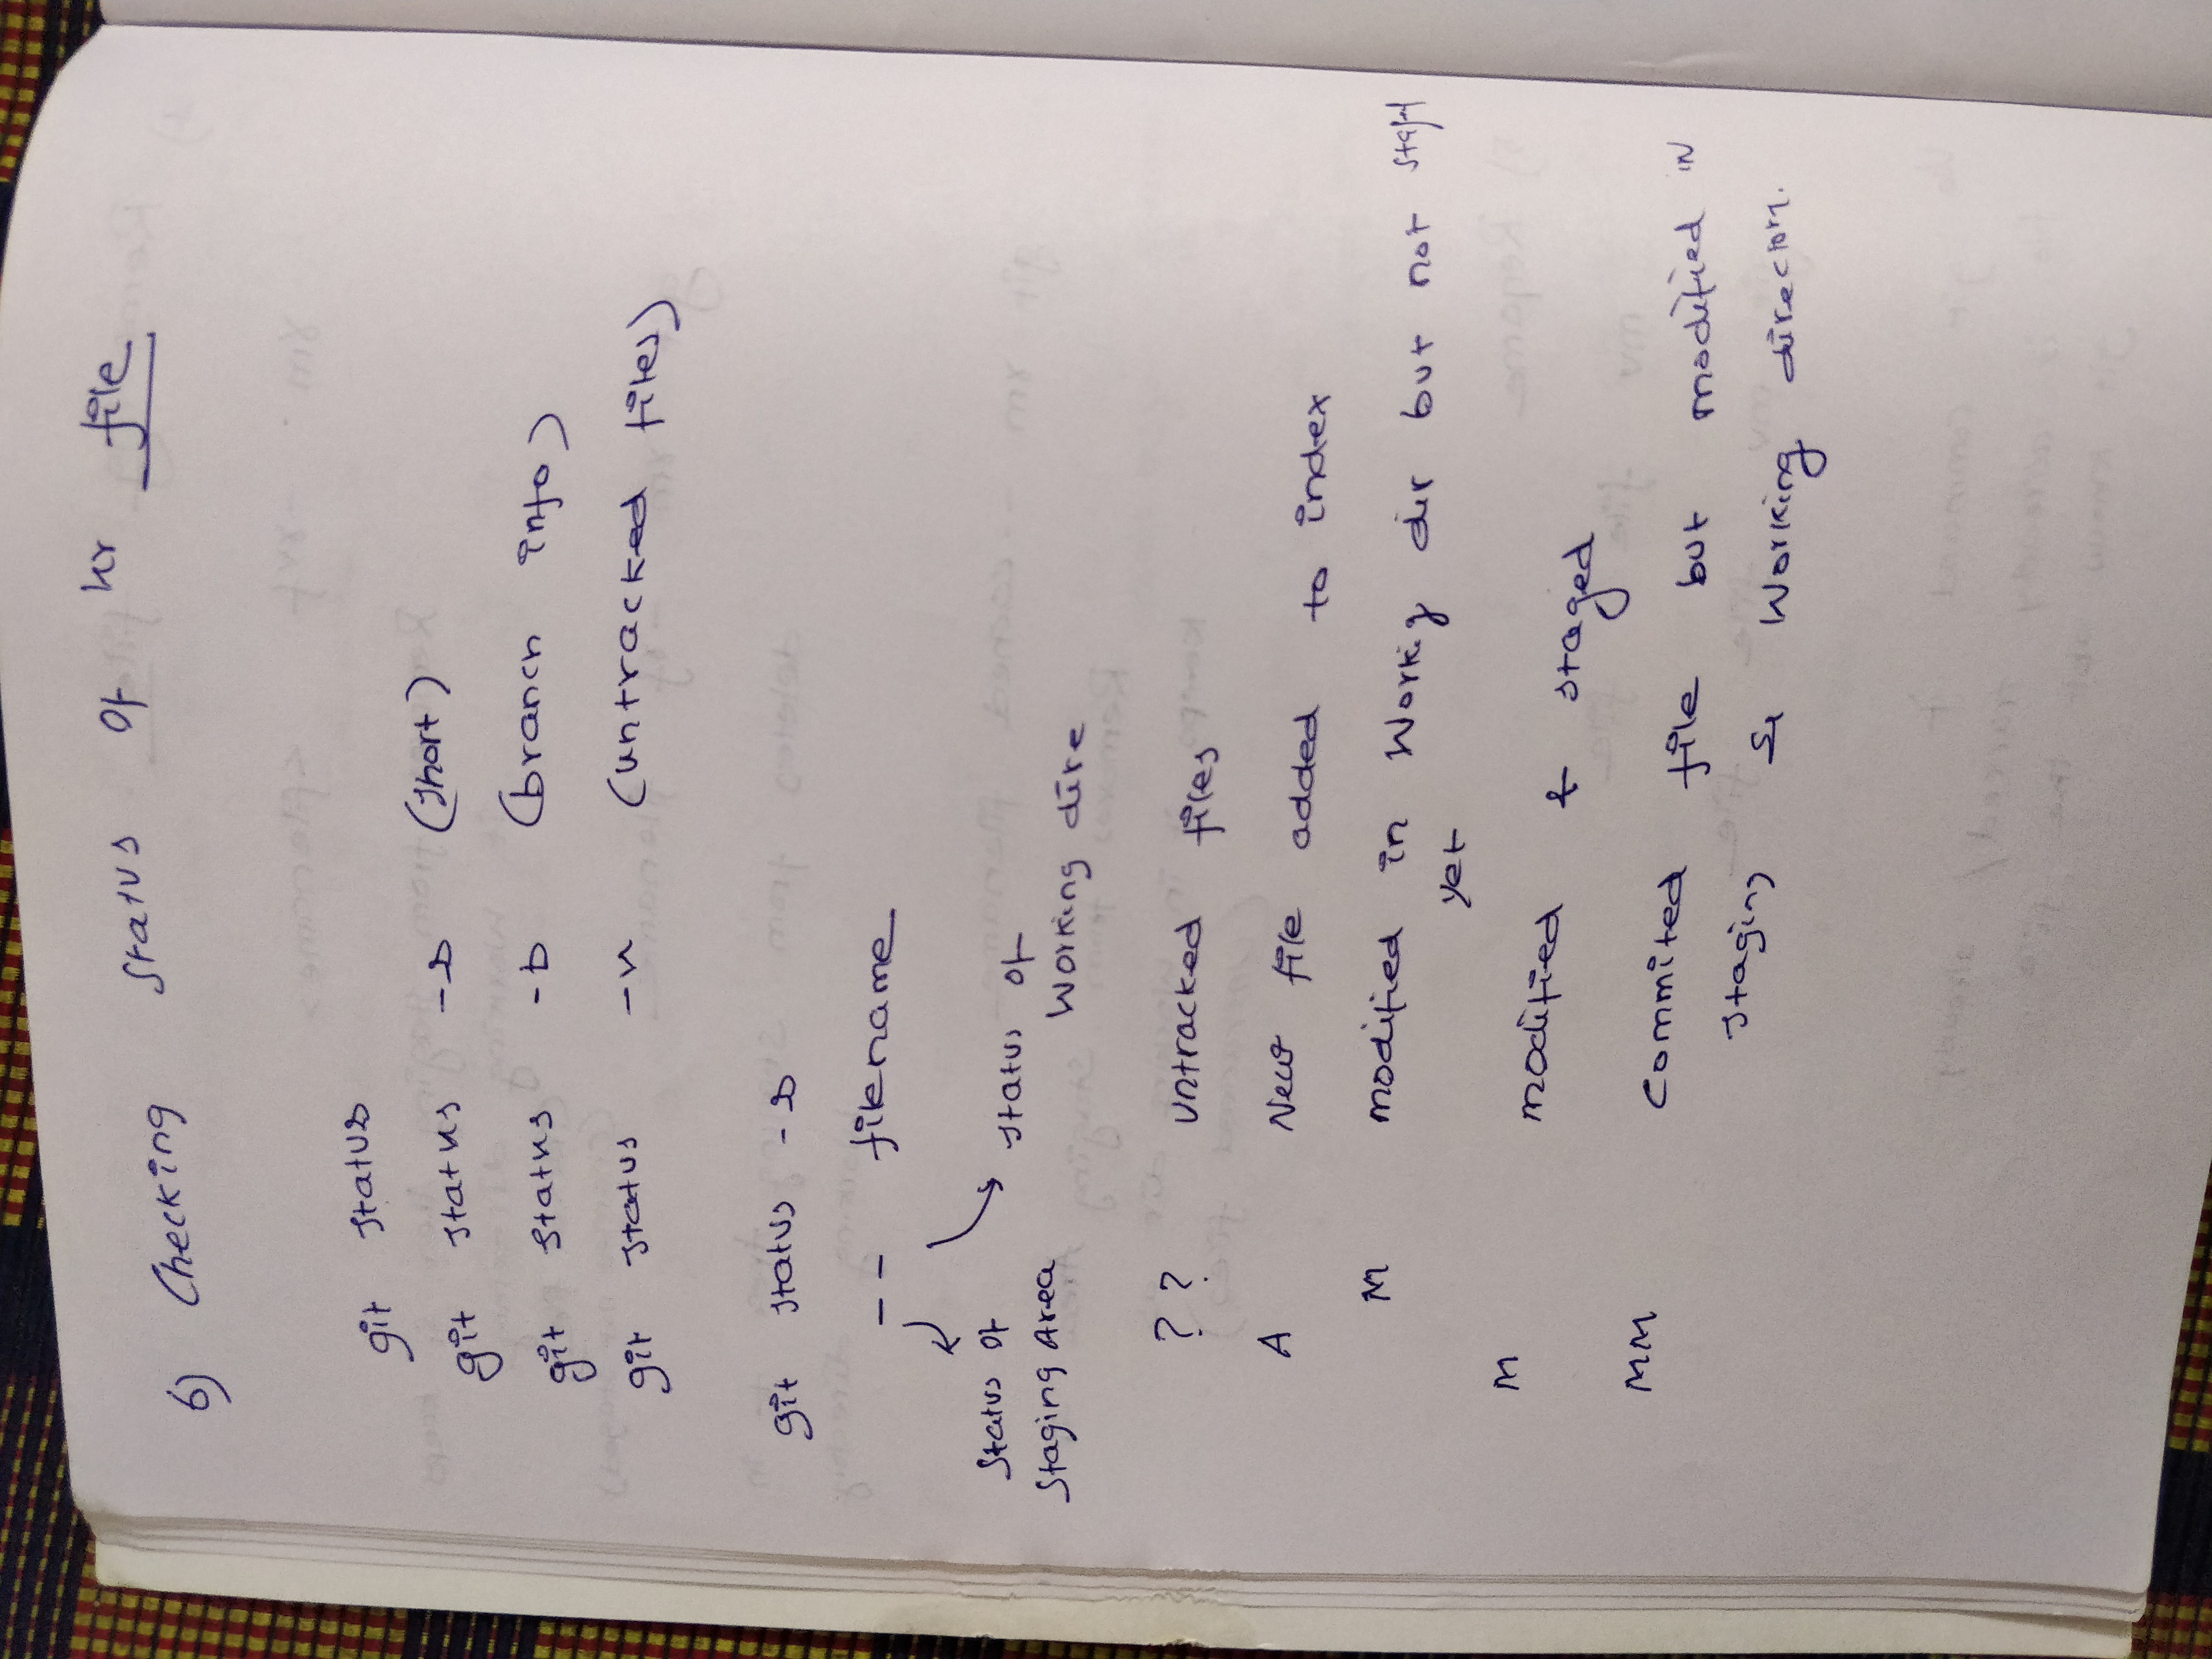 6) Checking status of hr file
git status
git status -s (short)
git status -b (branch info)
git status -u (untracked files)
git status -s
-- filename
Status of
Staging Area
status of
Working dire
?? untracked files
A New file added to index
M modified in Workig dir but not staged
yet
M modified & staged
MM Commited file but modified in
staging & Working directory.